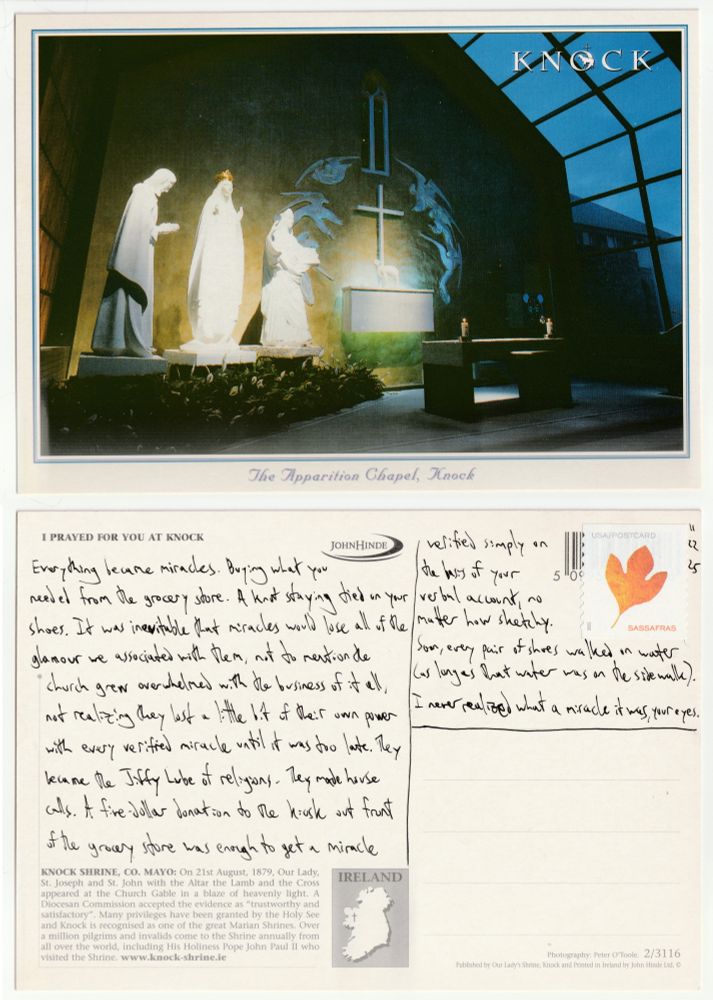 KNOCK
The Apparition Chapel, Knock
I PRAYED FOR YOU AT KNOCK
JOHNHINDE
Everything became miracles. Buying what you
needed from the grocery store. A knot staying tied on your
shoes. It was inevitable that miracles would lose all of the
glamour we associated with them, not to mention the
church grew overwhelmed with the business of it all,
not realizing they lost a little bit of their own power
with every verified miracle until it was too late. They
became the Jiffy Lube of religions. They made house
calls. A five-dollar donation to the kiosk out front
of the grocery store was enough to get a miracle
verified simply on
the basis of your
verbal account, no
matter how sketchy.
Soon, every pair of shoes walked on water
(as long as that water was on the sidewalk).
I never realized what a miracle it was, your eyes.
5 09
USA/POSTCARD
SASSAFRAS
11
22
25
KNOCK SHRINE, CO. MAYO: On 21st August, 1879, Our Lady,
St. Joseph and St. John with the Altar the Lamb and the Cross
appeared at the Church Gable in a blaze of heavenly light. A
Diocesan Commission accepted the evidence as "trustworthy and
satisfactory". Many privileges have been granted by the Holy See
and Knock is recognised as one of the great Marian Shrines. Over
a million pilgrims and invalids come to the Shrine annually from
all over the world, including His Holiness Pope John Paul II who
visited the Shrine. www.knock-shrine.ie
IRELAND
Photography: Peter O'Toole. 2/3116
Published by Our Lady's Shrine, Knock and Printed in Ireland by John Hinde Ltd. ©